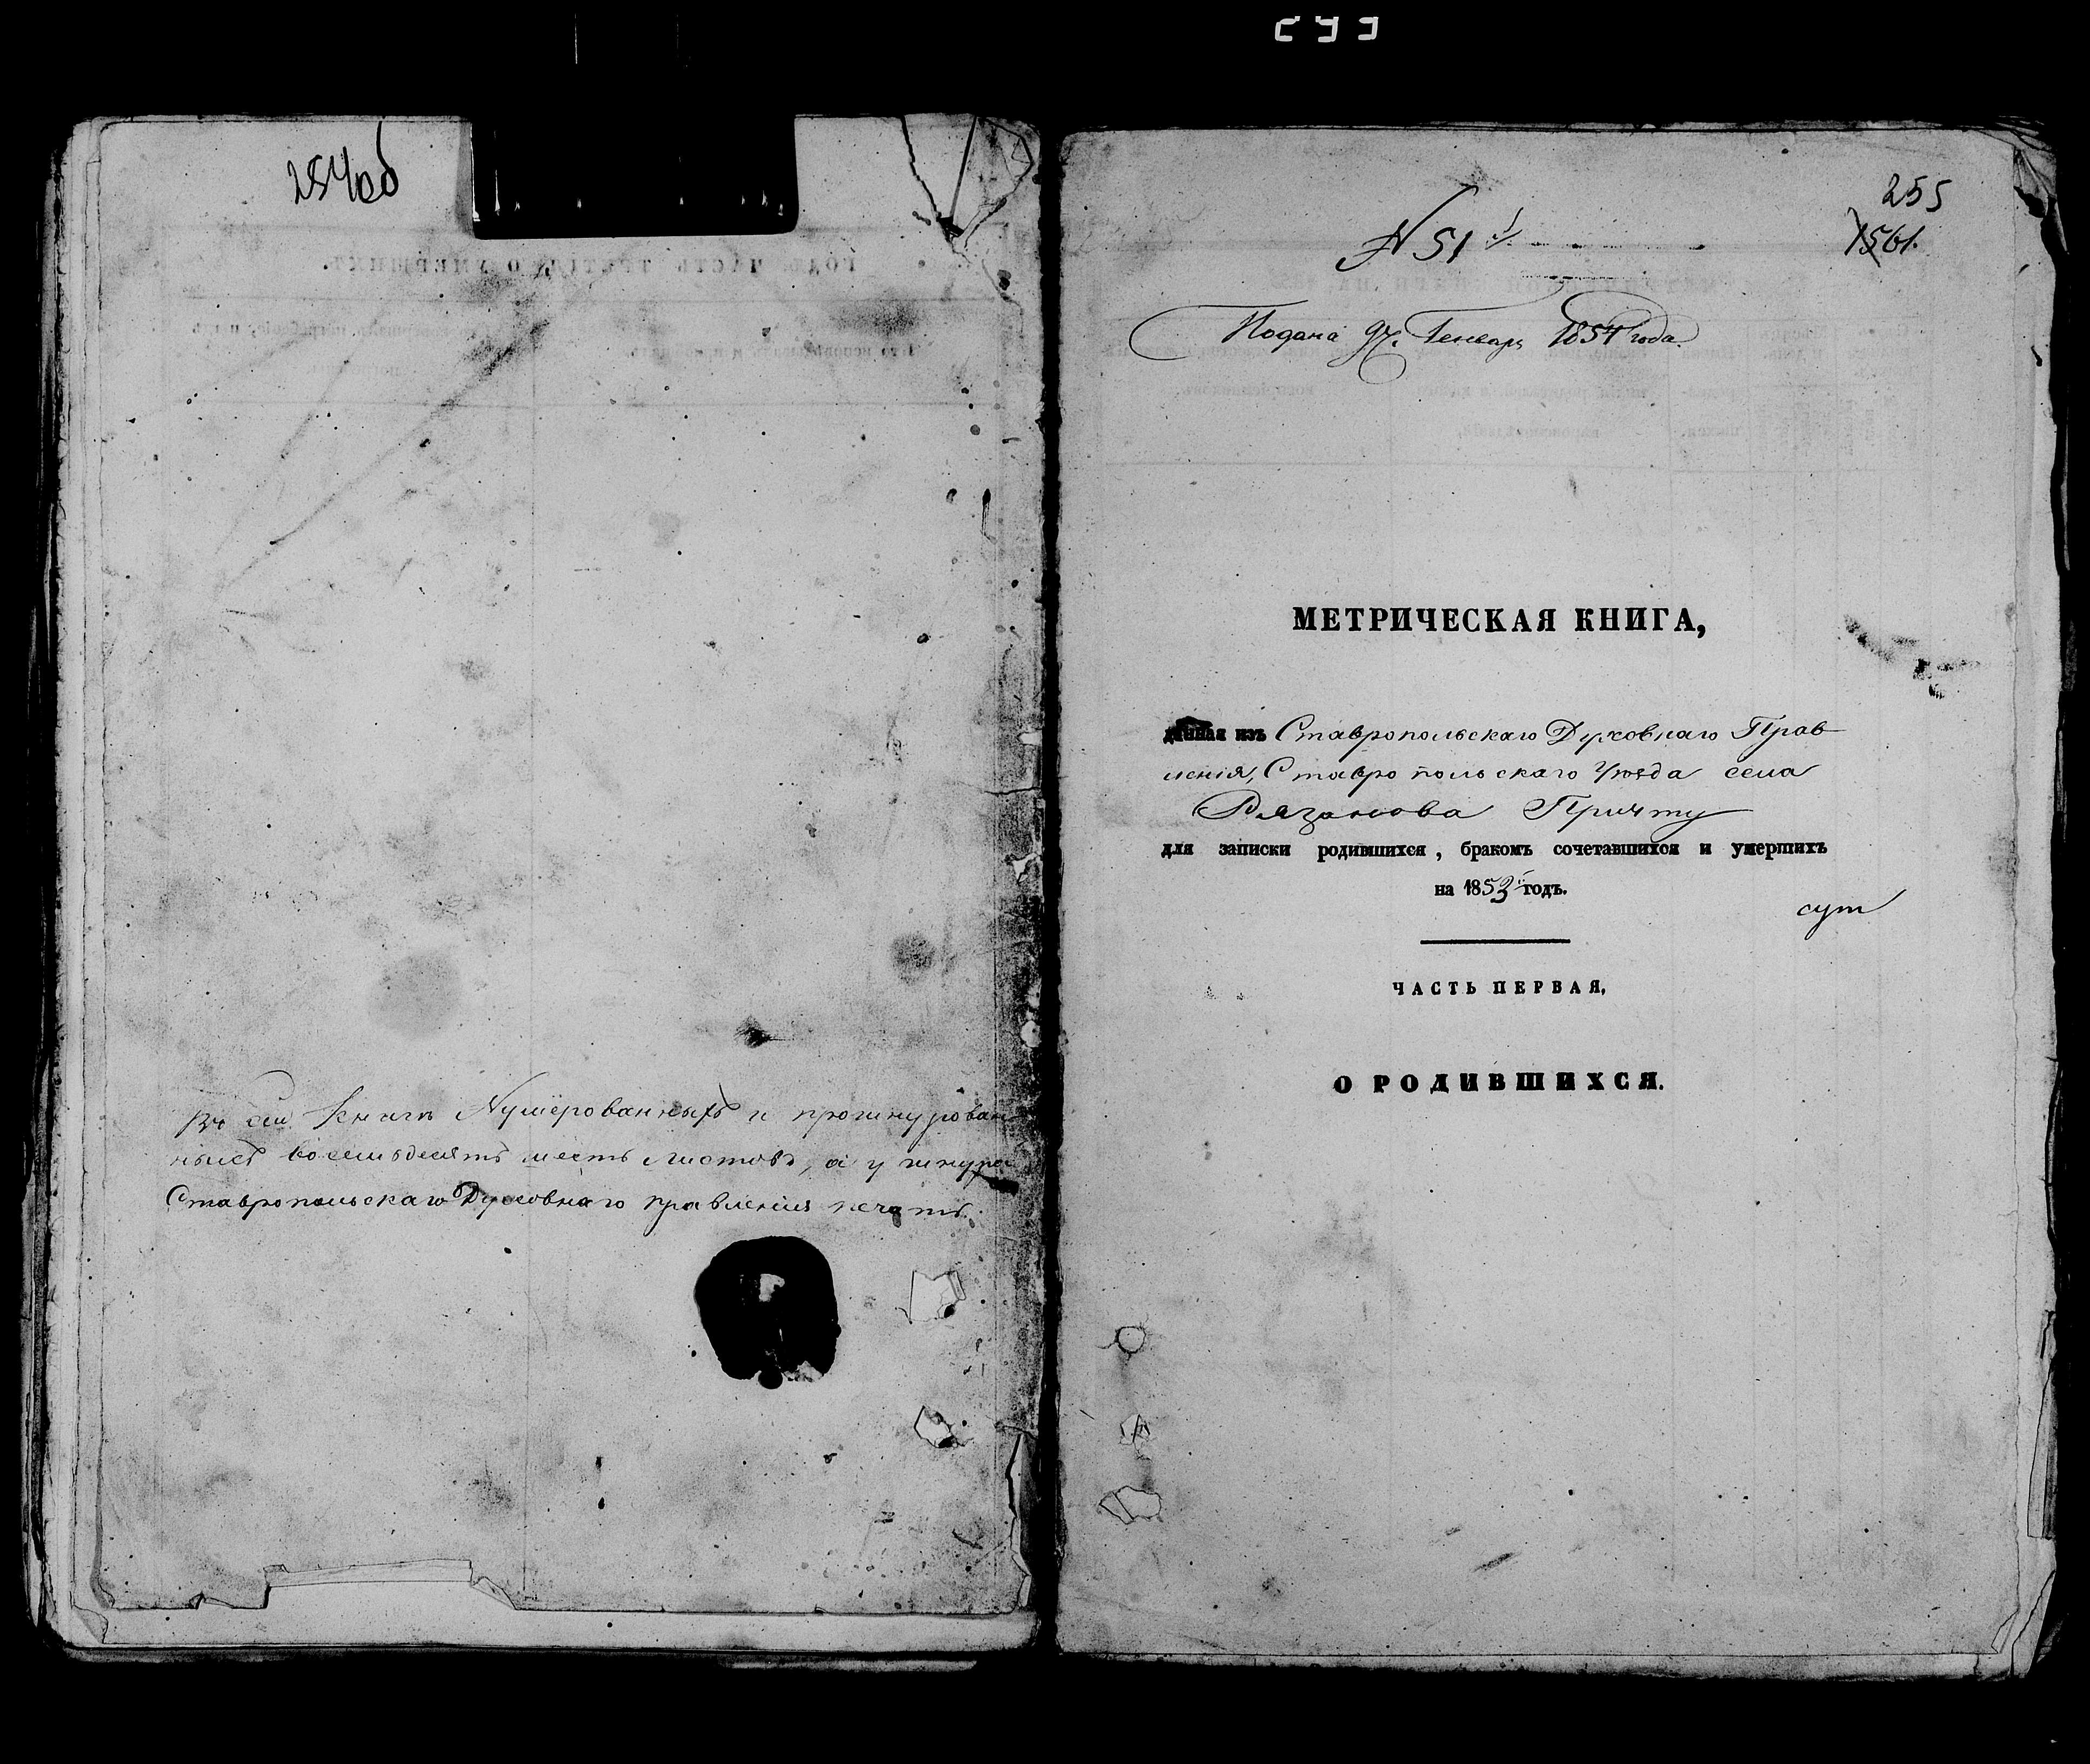 299
254об
Въ сей книгѣ Нумерованныхъ и прошнурован
ныхъ восемьдесятъ шесть листовъ, а у шнура
Ставропольскаго Духовнаго правленія печать.
255
1561.
N 51й
Подана Генваря 1854 года.
МЕТРИЧЕСКАЯ КНИГА,
данная изъ Ставропольскаго Духовнаго Прав
ленія, Ставропольскаго Уѣзда села
Рязанова Причту
для записки родившихся, бракомъ сочетавшихся и умершихъ
на 1853й годъ.
ЧАСТЬ ПЕРВАЯ,
О РОДИВШИХСЯ.